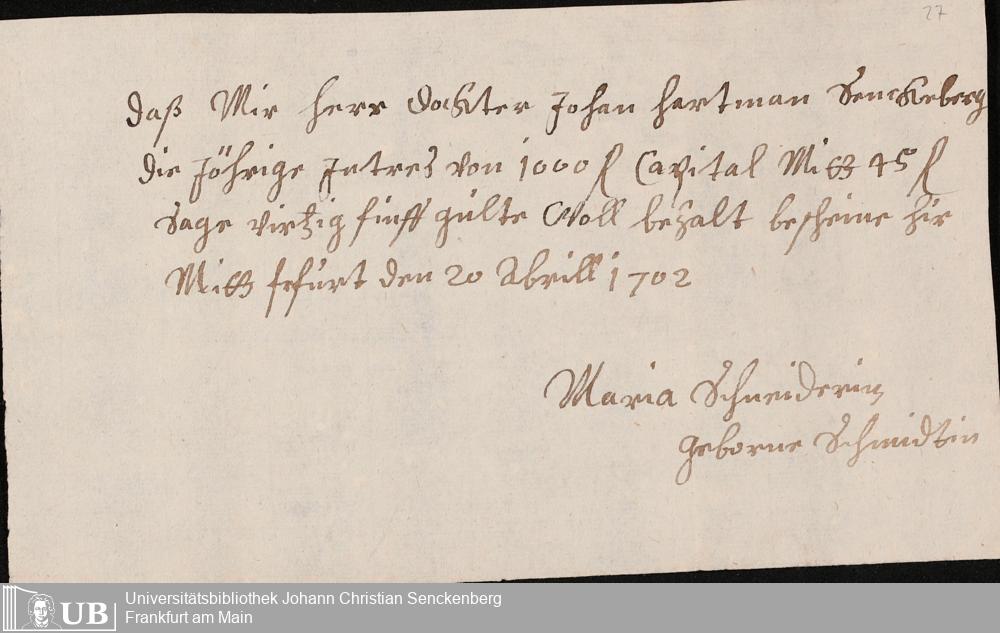 27
daß Mir herr dockter Johan hartman Senckeberg
die Jöhrige Intres von 1000 fl Capital Mitt 45 fl
sage virtzig finff gülte Woll bezalt bescheine hir
Mitt frfurt den 20 Abrill 1702
Maria Schneiderin
geborne Schmidtin
UB
Universitätsbibliothek Johann Christian Senckenberg
Frankfurt am Main